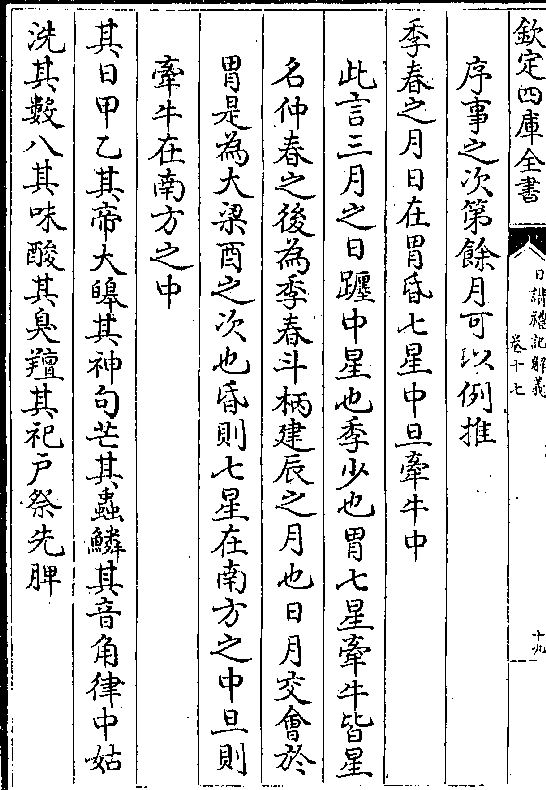 欽定四庫全書
日講禮記解義
卷十七
十九
序事之次第餘月可以例推
季春之月日在胃昏七星中旦牽牛中
此言三月之日躔中星也季少也胃七星牽牛皆星
名仲春之後為季春斗柄建辰之月也日月交會於
胃是為大梁酉之次也昏則七星在南方之中旦則
牽牛在南方之中
其日甲乙其帝大皞其神句芒其蟲鱗其音角律中姑
洗其數八其味酸其臭羶其祀戶祭先脾